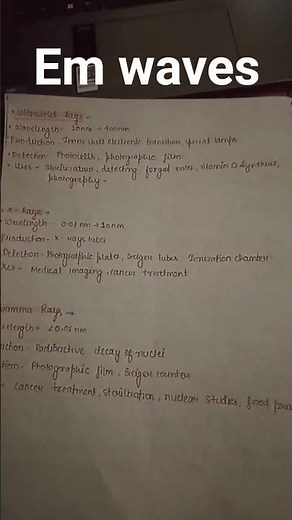 Em waves
• Ultraviolet Rays -
• Wavelength - 10nm → 400nm
Production - Inner shell electronic transition, special lamps
• Detection - Photocells, photographic film
• Uses - Sterilization, detecting forged notes, vitamin D synthesis,
photography -
X - Rays →
• Wavelength - 0.01 nm → 10nm
Production - X-rays tubes
Detection - Photographic plates, Geiger tubes Ionization chamber
Uses - Medical imaging, cancer treatment
Gamma Rays →
velength → <0.01 nm
uction - Radioactive decay of nuclei
tion - Photographic film, Geiger counter
cancer treatment, sterilization, nuclear studies, food pres